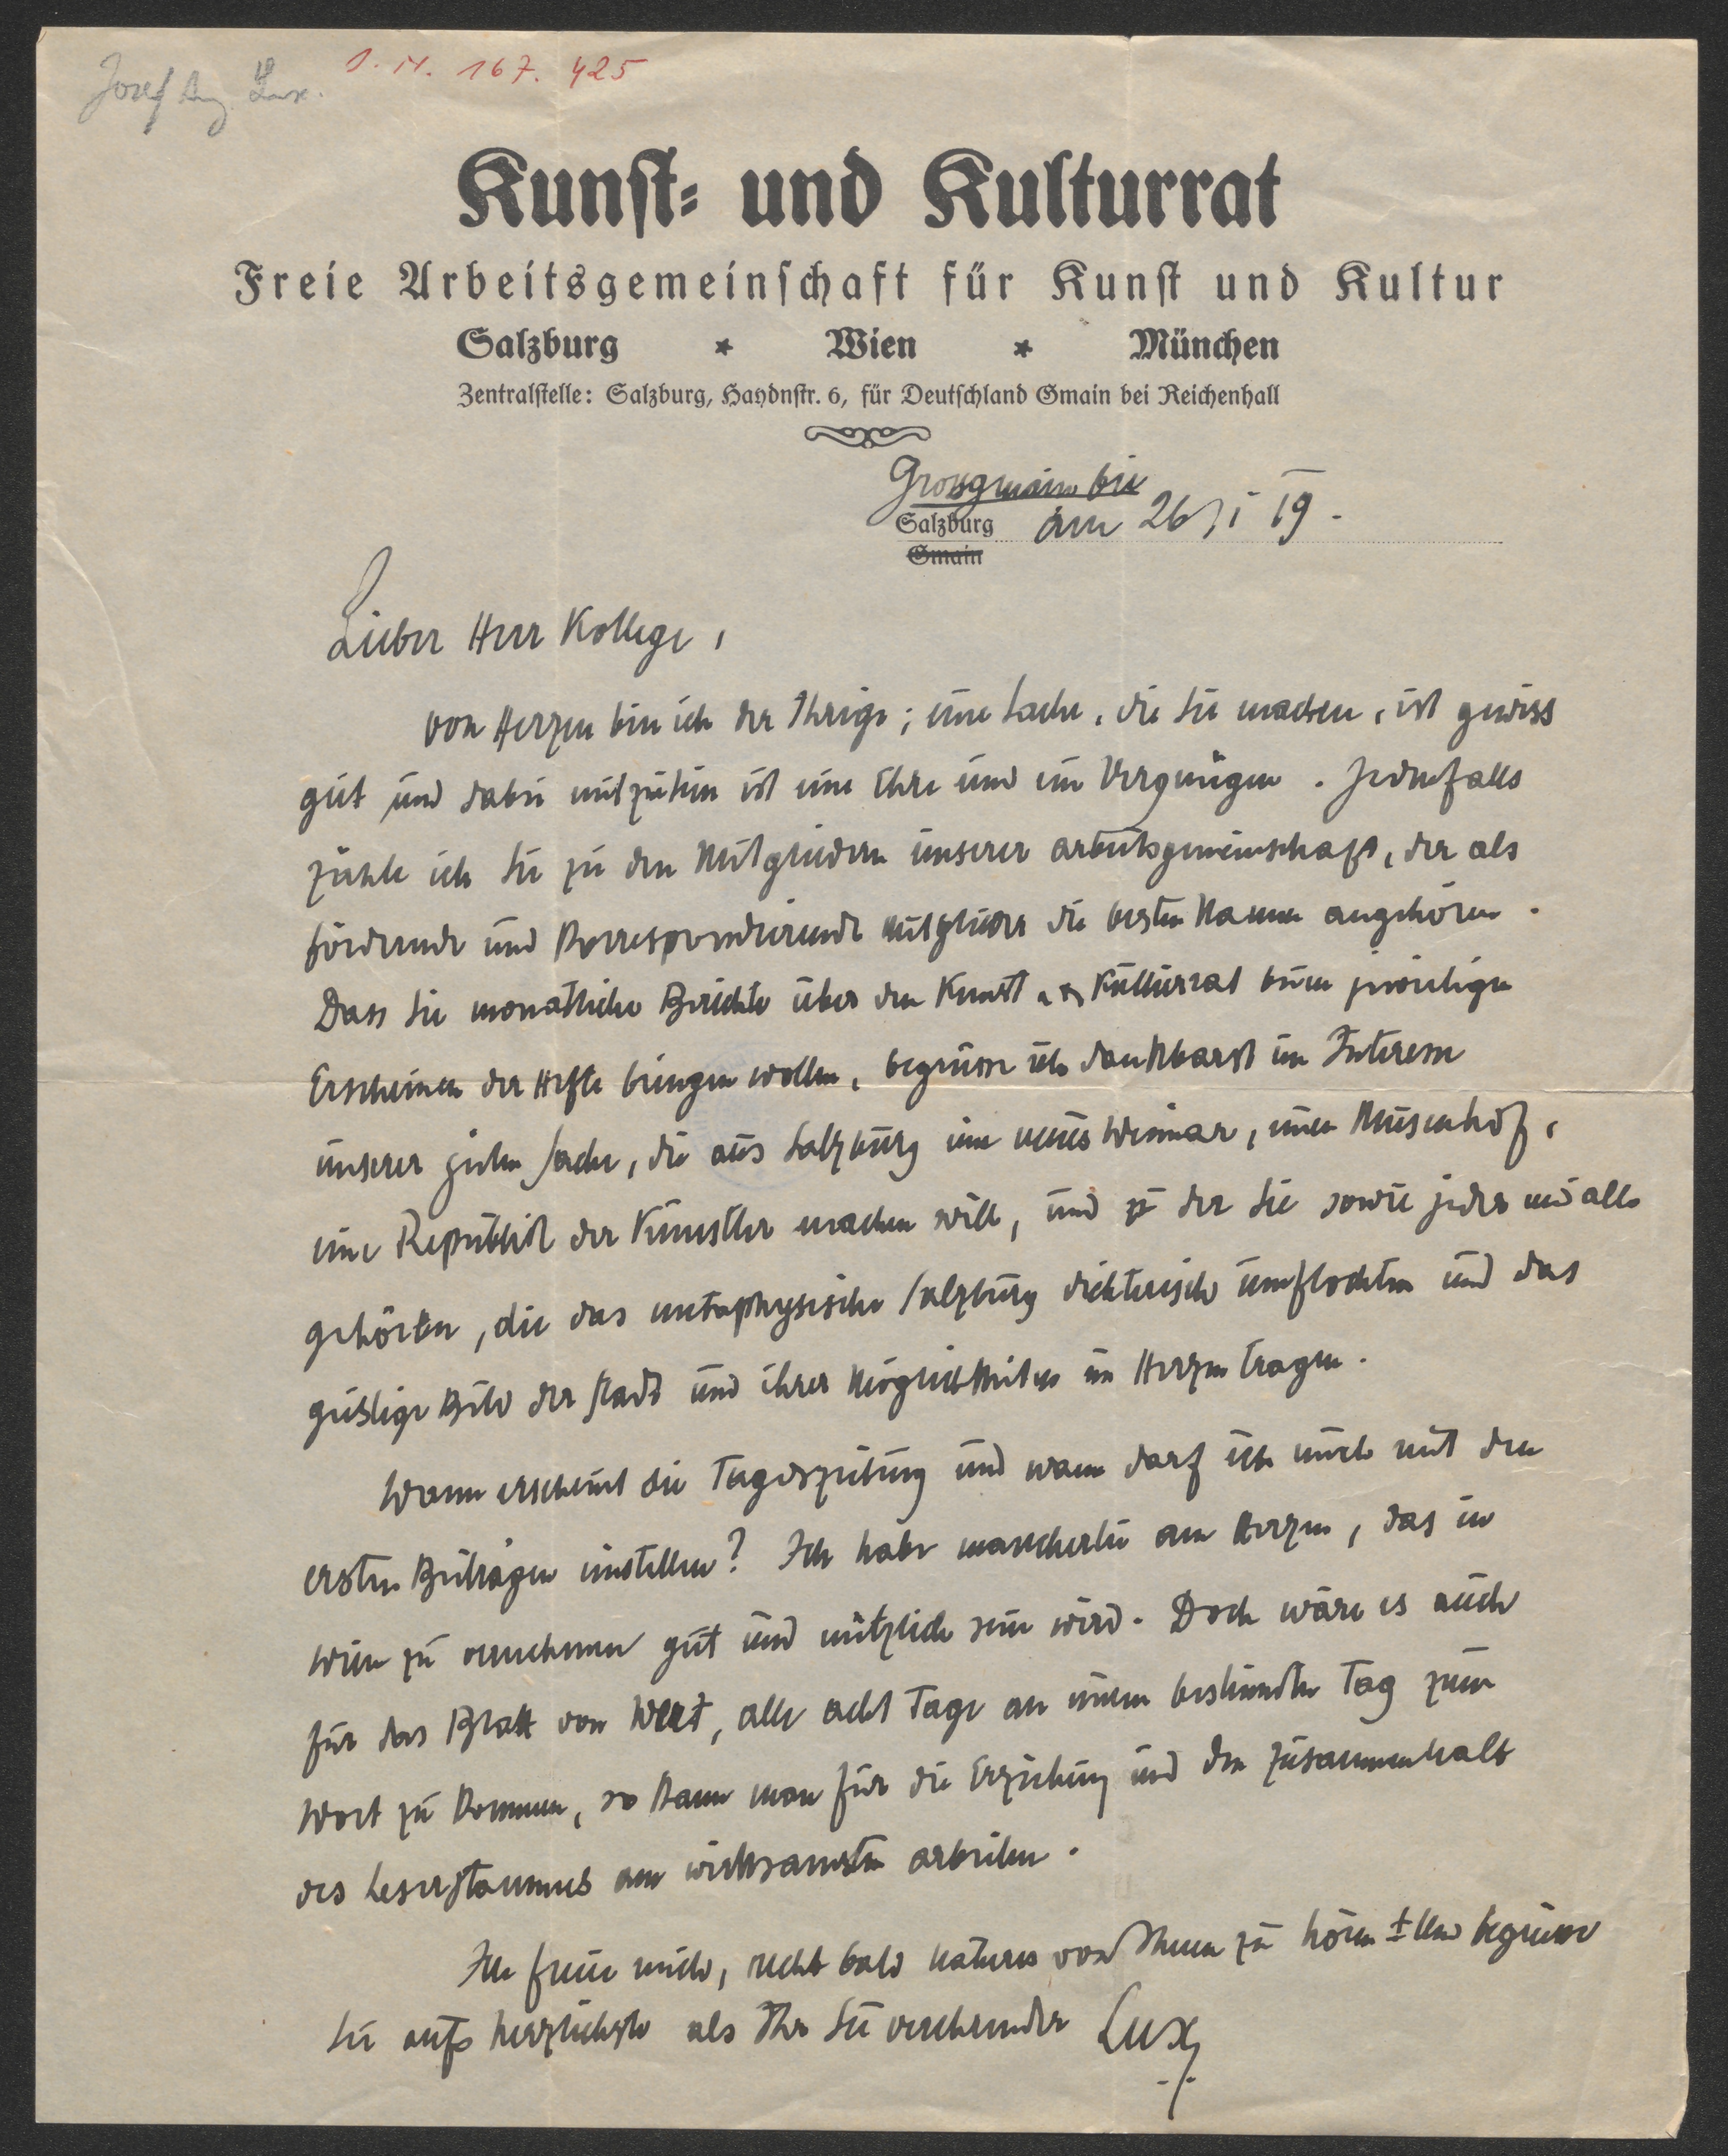 Josef Aug Lux.
I. N. 167. 425
Kunst- und Kulturrat
Freie Arbeitsgemeinschaft für Kunst und Kultur
Salzburg * Wien * München
Zentralstelle: Salzburg, Haydnstr. 6, für Deutschland Gmain bei Reichenhall
Grossgmain bei
Salzburg am 26/I 19.
Gmain
Lieber Herr Kollege,
von Herzen bin ich der Ihrige; eine Sache, die Sie machen, ist gewiss
gut und dabei mitzutun ist eine Ehre und ein Vergnügen. Jedenfalls
zähle ich Sie zu den Mitgliedern unserer Arbeitsgemeinschaft, der als
fördernde und korrespondierende Mitglieder die besten Namen angehören.
Dass Sie monatliche Berichte über den Kunst u. Kulturrat beim jeweiligen
Erscheinen der Hefte bringen wollen, begrüsse ich dankbarst im Interesse
unserer guten Sache, die aus Salzburg ein neues Weimar, einen Musenhof,
eine Republik der Künstler machen will, und zu der Sie sowie jeder und alle
gehören, die das metaphysische Salzburg dichterisch umflochten und das
geistige Bild der Stadt und ihrer Möglichkeiten im Herzen tragen.
Wann erscheint die Tageszeitung und wann darf ich mich mit den
ersten Beiträgen einstellen? Ich habe mancherlei am Herzen, das in
Wien zu vernehmen gut und nützlich sein wird. Doch wäre es auch
für das Blatt von Wert, alle acht Tage an einem bestimmten Tag zum
Wort zu kommen, so kann man für die Erziehung und den Zusammenhalt
des Leserstammes am wirksamsten arbeiten.
Ich freue mich, recht bald näheres von Ihnen zu hören und begrüsse
Sie aufs herzlichste als Ihr Sie verehrender Lux